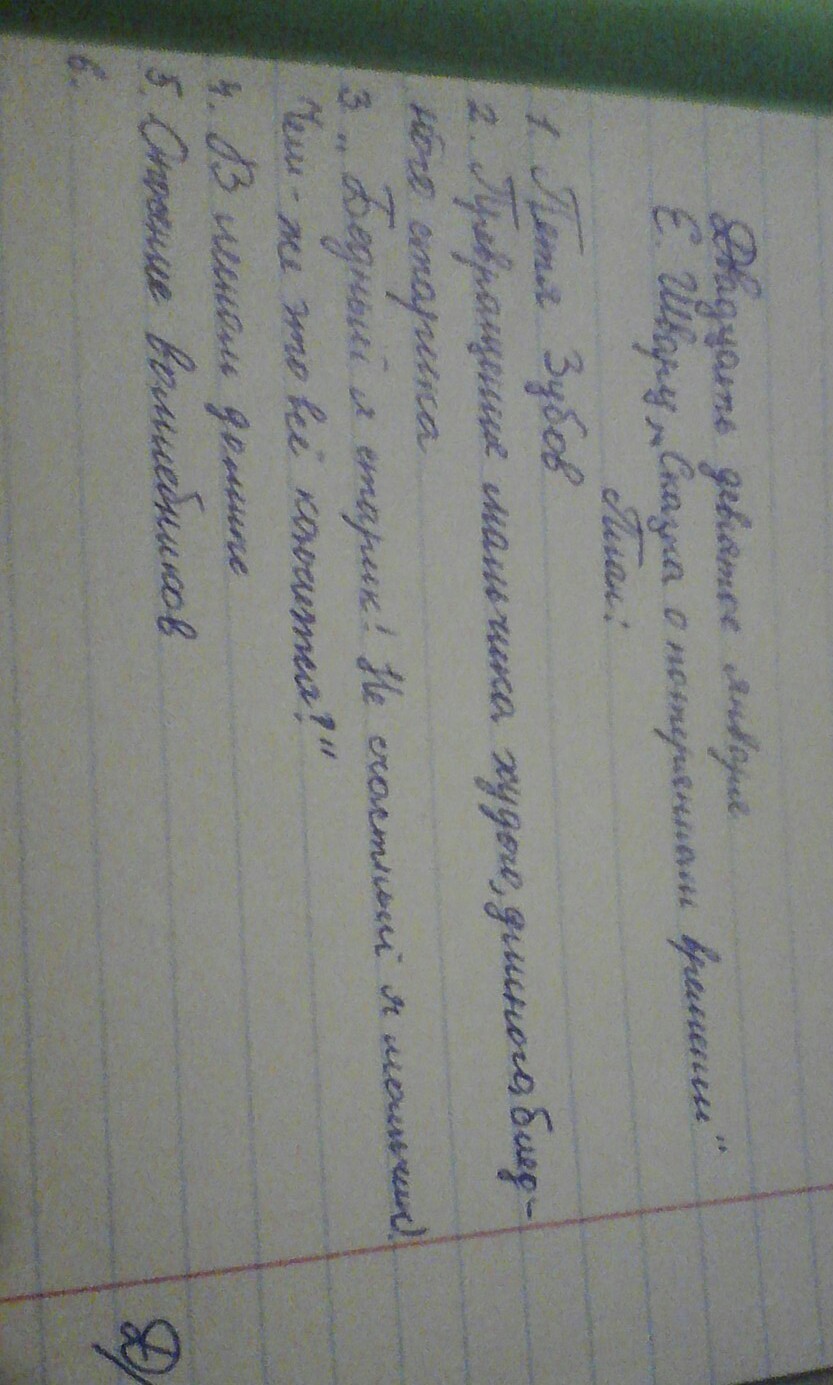 Двадцать девятое января
Е. Шварц „Сказка о потерянном времени"
План:
1. Петя Зубов
2. Превращение мальчика худого, длиного, блед-
ного старика
3 „ Бедный я старик! Не счастный я мальчик).
Чем - же это всё кончится?"
4. В лесном домике
5. Спасение волшебников
6.
Д/